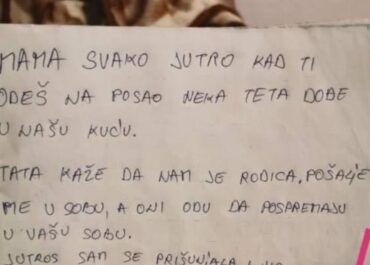 MAMA SVAKO JUTRO KAD TI
ODEŠ NA POSAO NEKA TETA DOĐE
U NAŠU KUĆU.
TATA KAŽE DA NAM JE RODICA, POŠALJE
ME U SOBU, A ONI ODU DA POSPREMAJU
U VAŠU SOBU.
JUTROS SAM SE PRIŠUNJALA